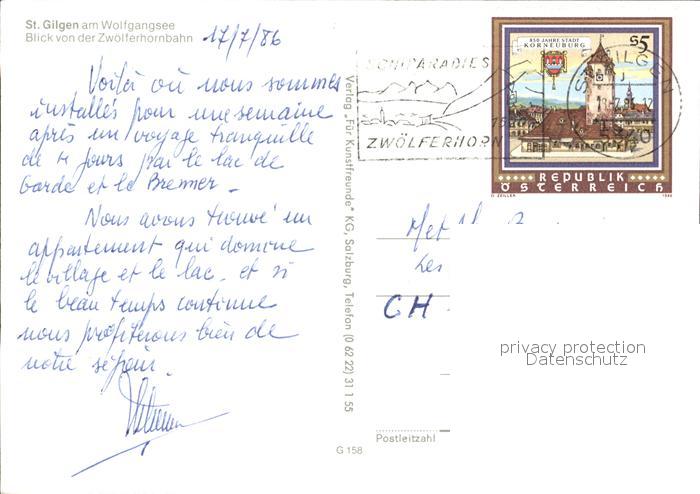 St. Gilgen am Wolfgangsee
Blick von der Zwölferhornbahn
17/7/86
Voilà où nous sommes
installés pour une semaine
après un voyage tranquille
de 4 jours par le lac de
Garde et le Brenner.
Nous avons trouvé un
appartement qui domine
le village et le lac. et si
le beau temps continue
nous profiterons bien de
notre séjour.
Verlag „Für Kunstfreunde" KG, Salzburg, Telefon (0 62 22) 31 1 55
G 158
SCHIPARADIES
ZWÖLFERHORN
GILGEN
850 JAHRE STADT
KORNEUBURG
S5
REPUBLIK
ÖSTERREICH
O. ZEILLER
1986
Met
Les
CH
privacy protection
Datenschutz
Postleitzahl